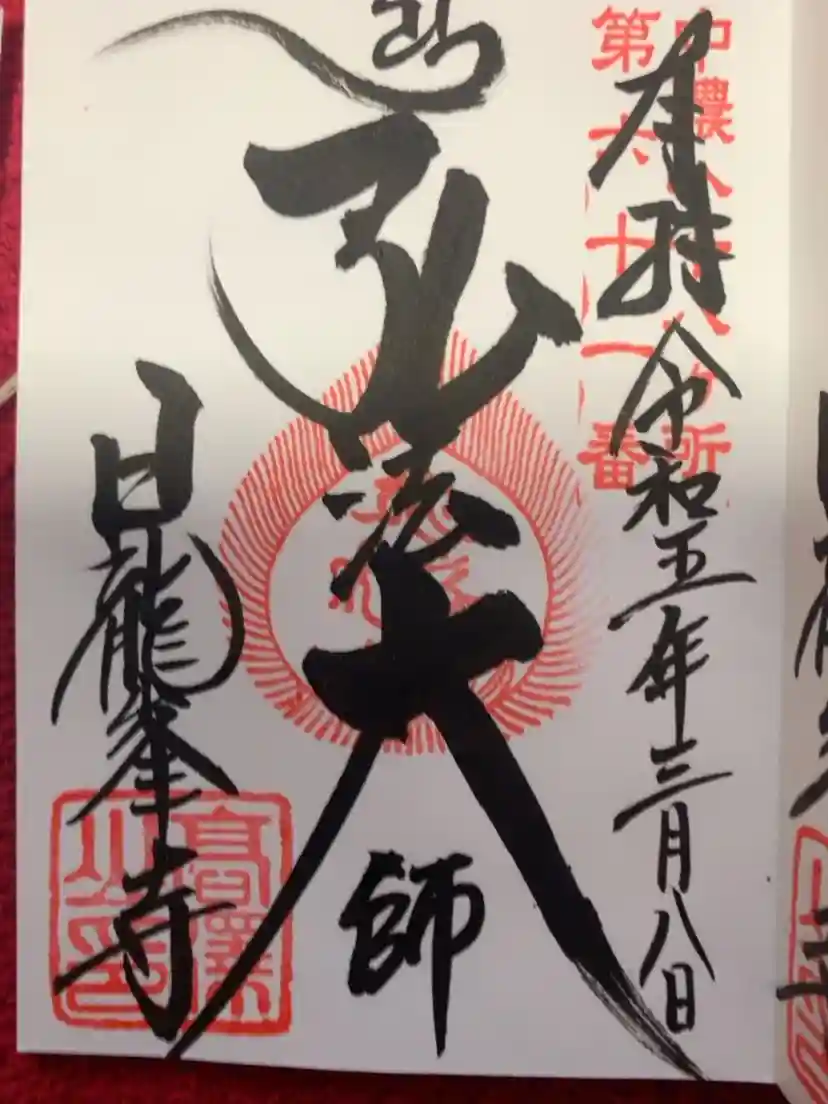 中濃八十八ヶ所
第六十一番
奉拝 令和五年三月八日
弘法大師
日龍峯寺